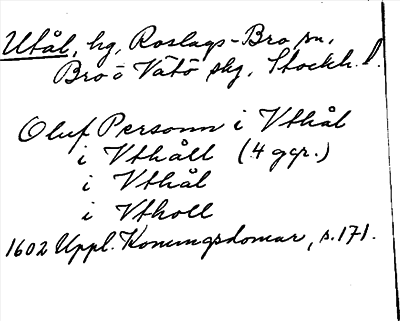 Utål, hg, Roslags-Bro sn,
Bro o Vätö skg, Stockh. l.
Oluf Personn i Vthål
i Vthåll (4 ggr.)
i Vthål
i Vtholl
1602 Uppl. Konungsdomar, s. 171.